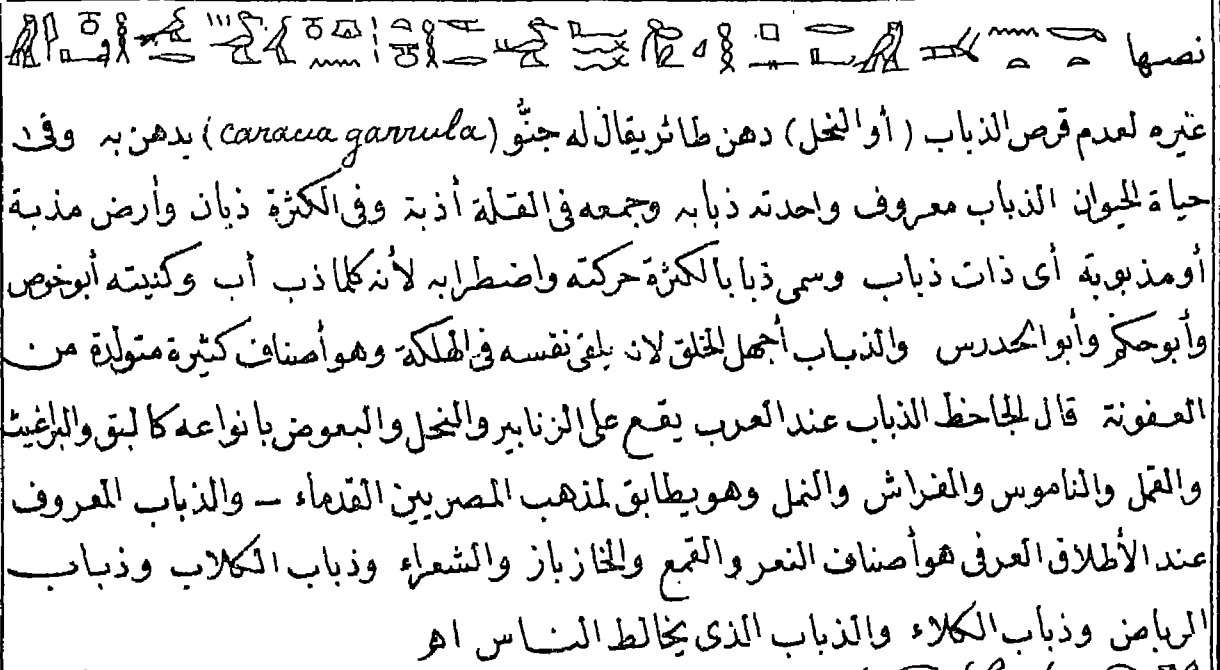 نصها
غيره لعدم قرص الذباب (أو النحل) دهن طائر يقال له جنّو (caracia garrula) يدهن به وفى
حياة الحيوان الذباب معروف واحدته ذبابه وجمعه فى القلة أذبة وفى الكثرة ذبان وأرض مذبة
أو مذبوبة أى ذات ذباب وسمى ذبابا لكثرة حركته واضطرابه لأنه كلما ذب أب وكنيته أبو خوص
وأبو حكم وأبو الحدرس والذباب أجهل الخلق لانه يلقى نفسه فى الهلكة وهو أصناف كثيرة متولدة من
العفونة قال الجاحظ الذباب عند العرب يقع على الزنابير والنحل والبعوض بانواعه كالبق والبراغيث
والقمل والناموس والفراش والنمل وهو يطابق لمذهب المصريين القدماء – والذباب المعروف
عند الأطلاق العرفى هو أصناف النعر والقمع والخازباز والشعراء وذباب الكلاب وذباب
الرياض وذباب الكلاء والذباب الذى يخالط الناس اهـ